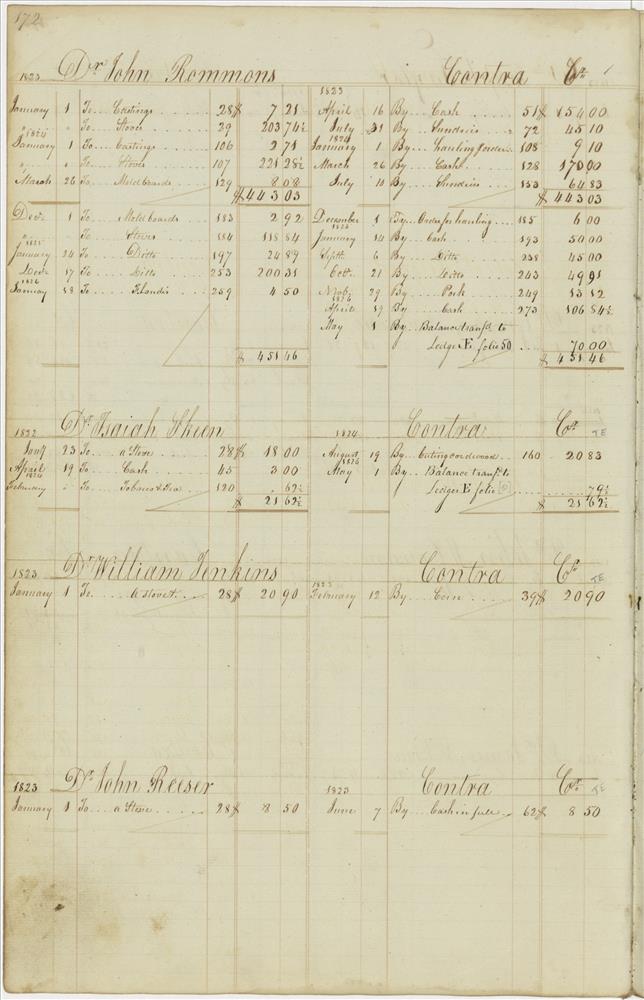 172
1823 Dr John Rommons Contra Cr
1823
January 1 To Castings 28 $ 7 21 April 16 By Cash 51 $ 154 00
" " To Stoves 29 203 74½ July 31 By Sundries 72 45 10
1824 1824
January 1 To Castings 106 2 71 January 1 By hauling 108 9 10
" " To Stoves 107 221 28½ March 26 By Cash 128 170 00
March 26 To Moldboards 129 8 08 July 10 By Sundries 153 64 83
$ 443 03 $ 443 03
Decr 1 To Moldboards 183 2 92 December 1 By Order for hauling 185 6 00
" To Stoves 184 118 84 January 14 By Cash 193 50 00
1825 1825
January 24 To Ditto 197 24 89 Septr 6 By Ditto 238 45 00
Decr 17 To Ditto 253 200 31 Octr 21 By Ditto 243 49 91
1826
January 18 To 259 4 50 Novbr 29 By Pork 249 13 12
1826
April 19 By Cash 273 106 84½
May 1 By Balance transfd to
Ledger E folio 50 70 00
$ 451 46 $ 451 46
1822 Dr Isaiah Skeen 1824 Contra Cr TE
23 To a Stove 28 $ 18 00 August 19 By Cuting cordwood 160 20 83
April 19 To Cash 45 3 00 May 1 By Balance transfd to
1824 1826
February " To Tobacco & Tea 120 62½ Ledger E folio 79½
$ 21 62½ $ 21 62½
1823 Dr William Jenkins Contra Cr TE
1823
January 1 To a Stove 28 $ 20 90 February 12 By Corn 39 $ 20 90
1823 Dr John Reeser 1823 Contra Cr TE
January 1 To a Stove 28 $ 8 50 June 7 By Cash in full 62 $ 8 50